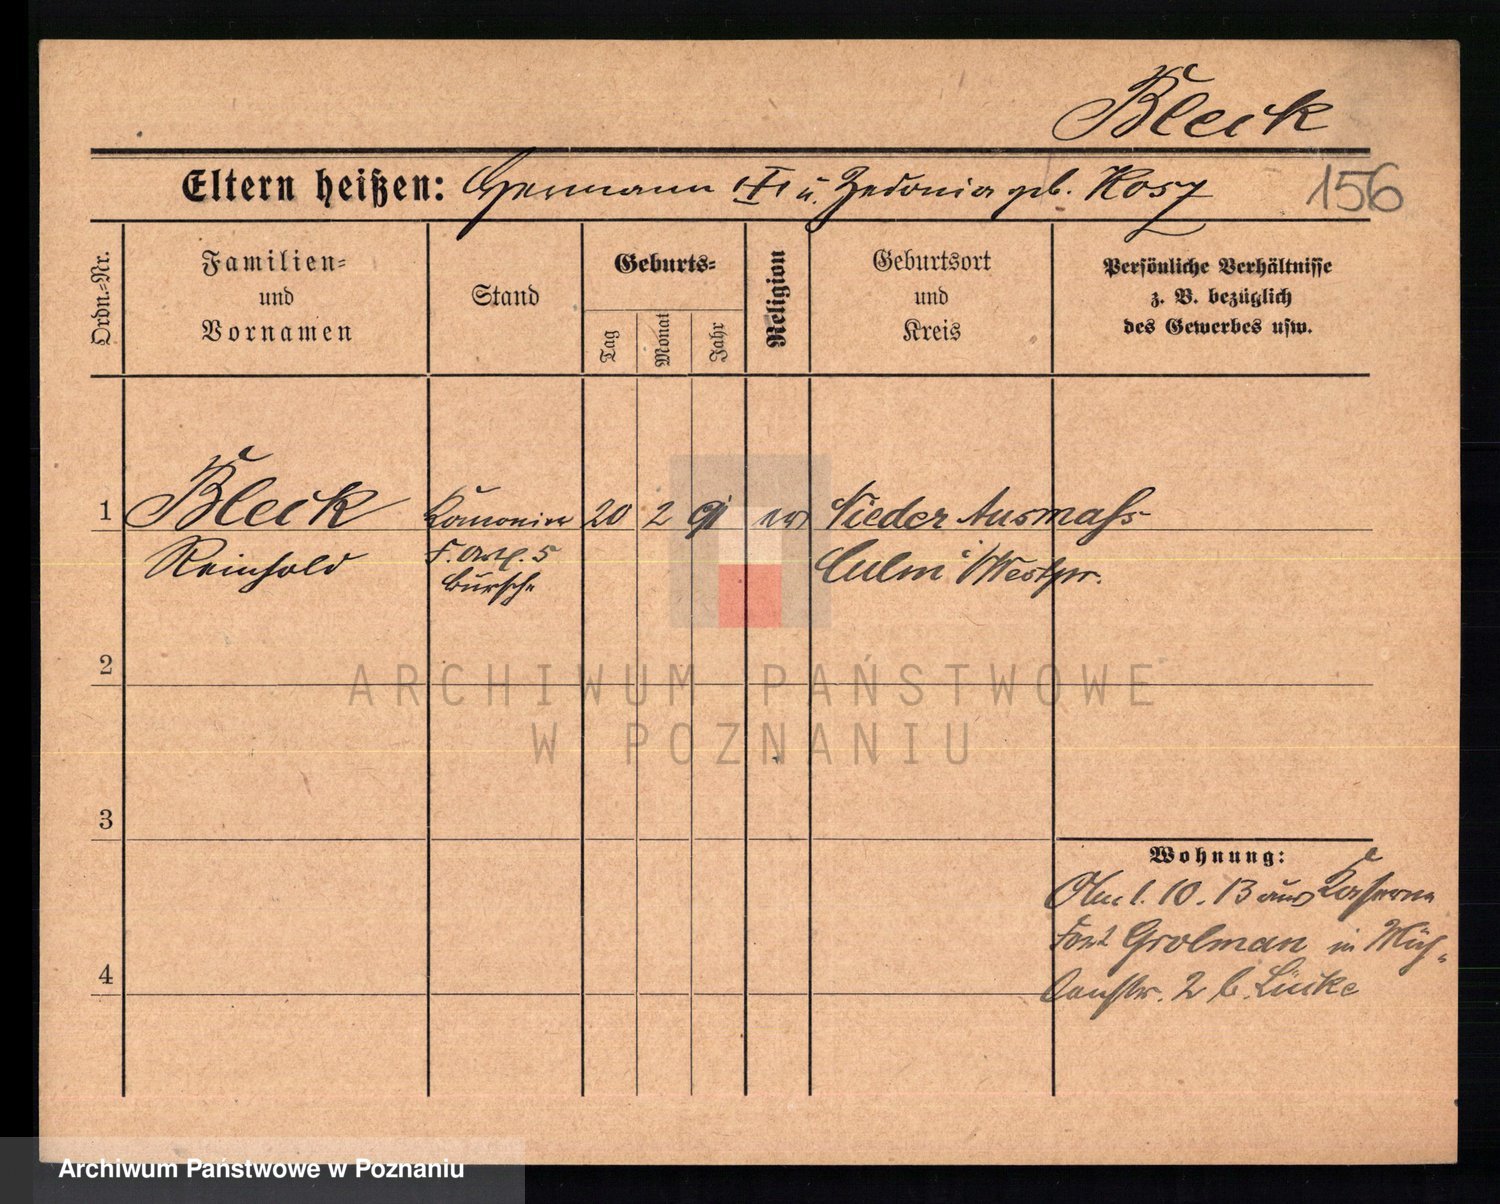 Bleck
Eltern heißen: Hermann u. Zedonia geb. Kosz
156
Ordn.=Nr.
Familien=
und
Vornamen
Stand
Geburts=
Tag
Monat
Jahr
Religion
Geburtsort
und
Kreis
Persönliche Verhältnisse
z. B. bezüglich
des Gewerbes usw.
1 Bleck Kanonier 20 2 91 ev Nieder Ausmaß
Reinhold F. Art. 5 Culm Westpr.
Bursche
2
3
4
Wohnung:
1. 10. 13 aus Kaserne
Fort Grolman in Müh-
lenstr. 2 b. Lücke
ARCHIWUM PAŃSTWOWE
W POZNANIU
Archiwum Państwowe w Poznaniu